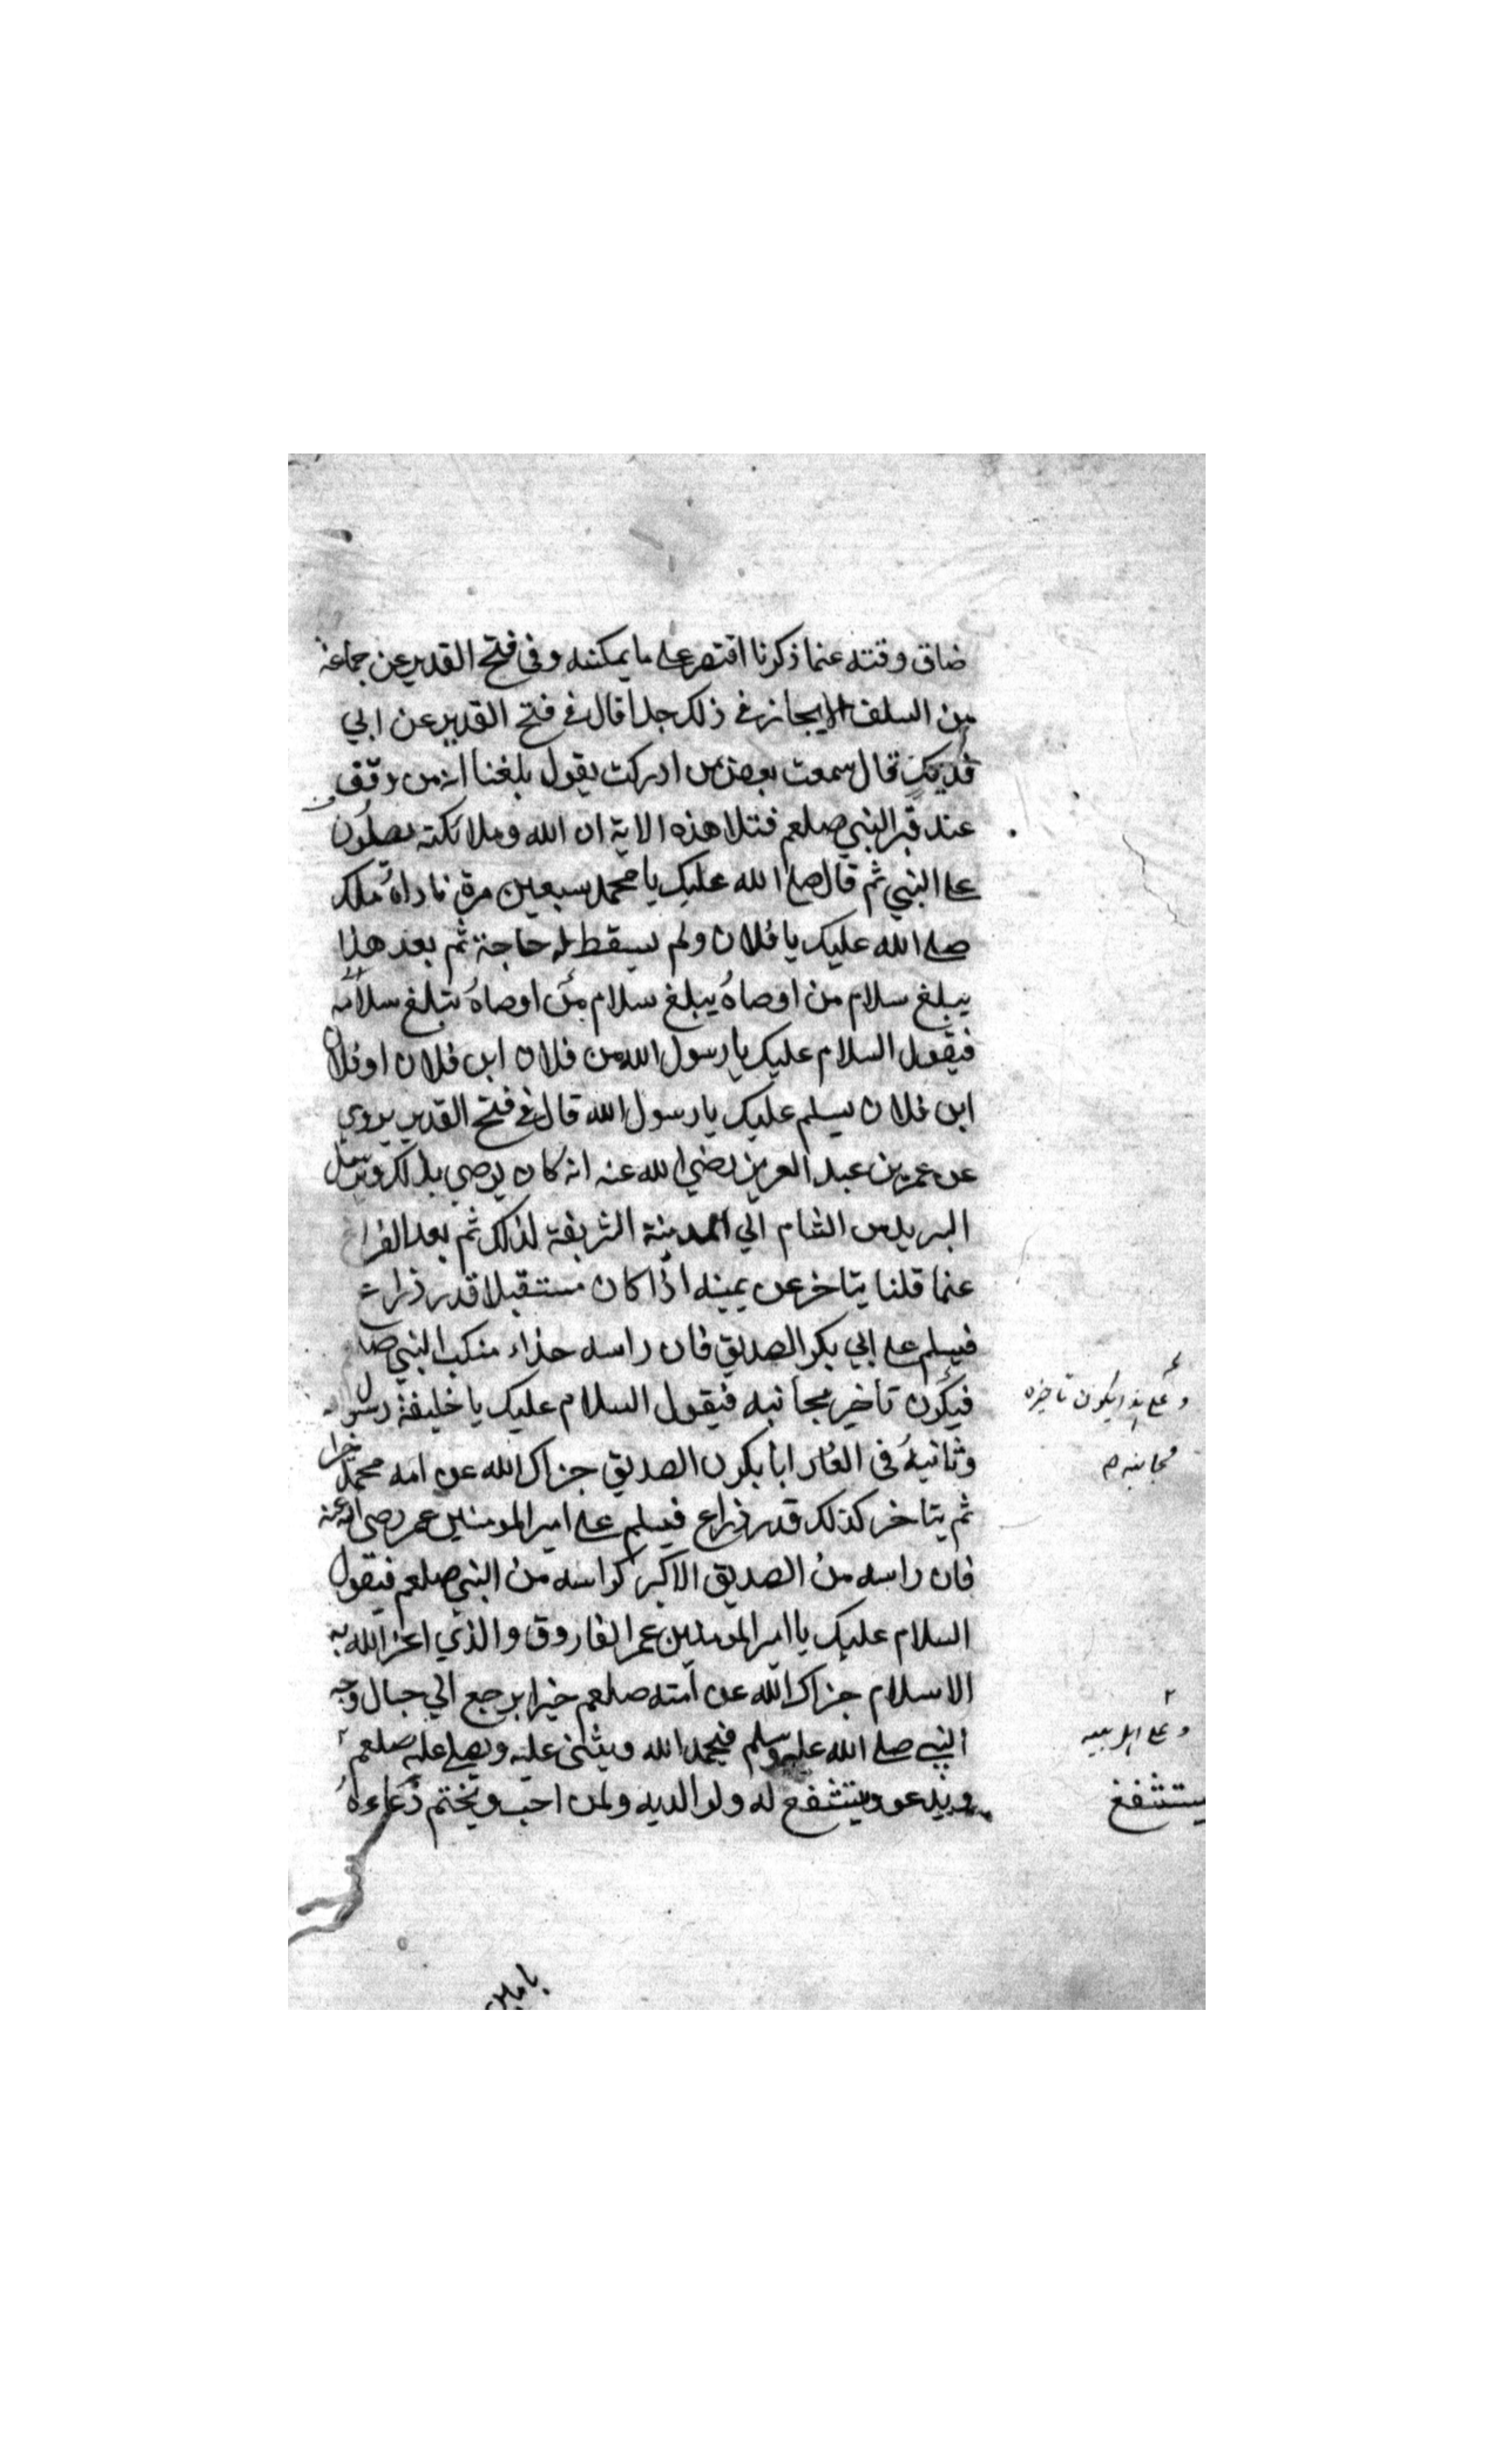 ضاق وقته عنما ذكرنا اقتصر على ما يمكنه وفي فتح القدير عن جماعة
من السلف الايجاز في ذلك جدا قال في فتح القدير عن ابي
فديك قال سمعت بعض من ادركت يقول بلغنا انه من وقف
عند قبر النبي صلعم فتلا هذه الاية ان الله وملائكته يصلون
على النبي ثم قال صلى الله عليك يا محمد سبعين مرة ناداه ملك
صلى الله عليك يا فلان ولم يسقط له حاجة ثم بعد هذا
يبلغ سلام من اوصاه يبلغ سلام من اوصاه بتبلغ سلامه
فيقول السلام عليك يا رسول الله من فلان ابن فلان او فلان
ابن فلان يسلم عليك يا رسول الله قال في فتح القدير يروي
عن عمر بن عبد العزيز رضي الله عنه انه كان يوصي بذلك ويرسل
البريد من الشام الي المدينة الشريفة لذلك ثم بعد الفراغ
عنما قلنا يتاخر عن يمينه اذا كان مستقبلا قدر ذراع
فيسلم على ابي بكر الصديق فان راسه حذاء منكب النبي
فيكون تأخير بجانبه فيقول السلام عليك يا خليفة رسول
وثانيه في الغار ابا بكر ن الصديق جزاك الله عن امه محمد خيرا
ثم يتاخر كذلك قدر ذراع فيسلم على امير المومنين عمر رضي الله عنه
فان راسه من الصديق الاكبر كراسه من النبي صلعم فيقول
السلام عليك يا امير المومنين عمر الفاروق والذي اعز الله به
الاسلام جزاك الله عن امته صلعم خيرا يرجع الي حبال وجه
النبي صلى الله عليه وسلم فيحمد الله ويثني عليه ويصلي عليه صلعم
ويدعو ويتشفع له ولوالديه ولمن احب ويختم دعاءه
وعلى هذا يكون تاخيره
بجانبه
يستشفع